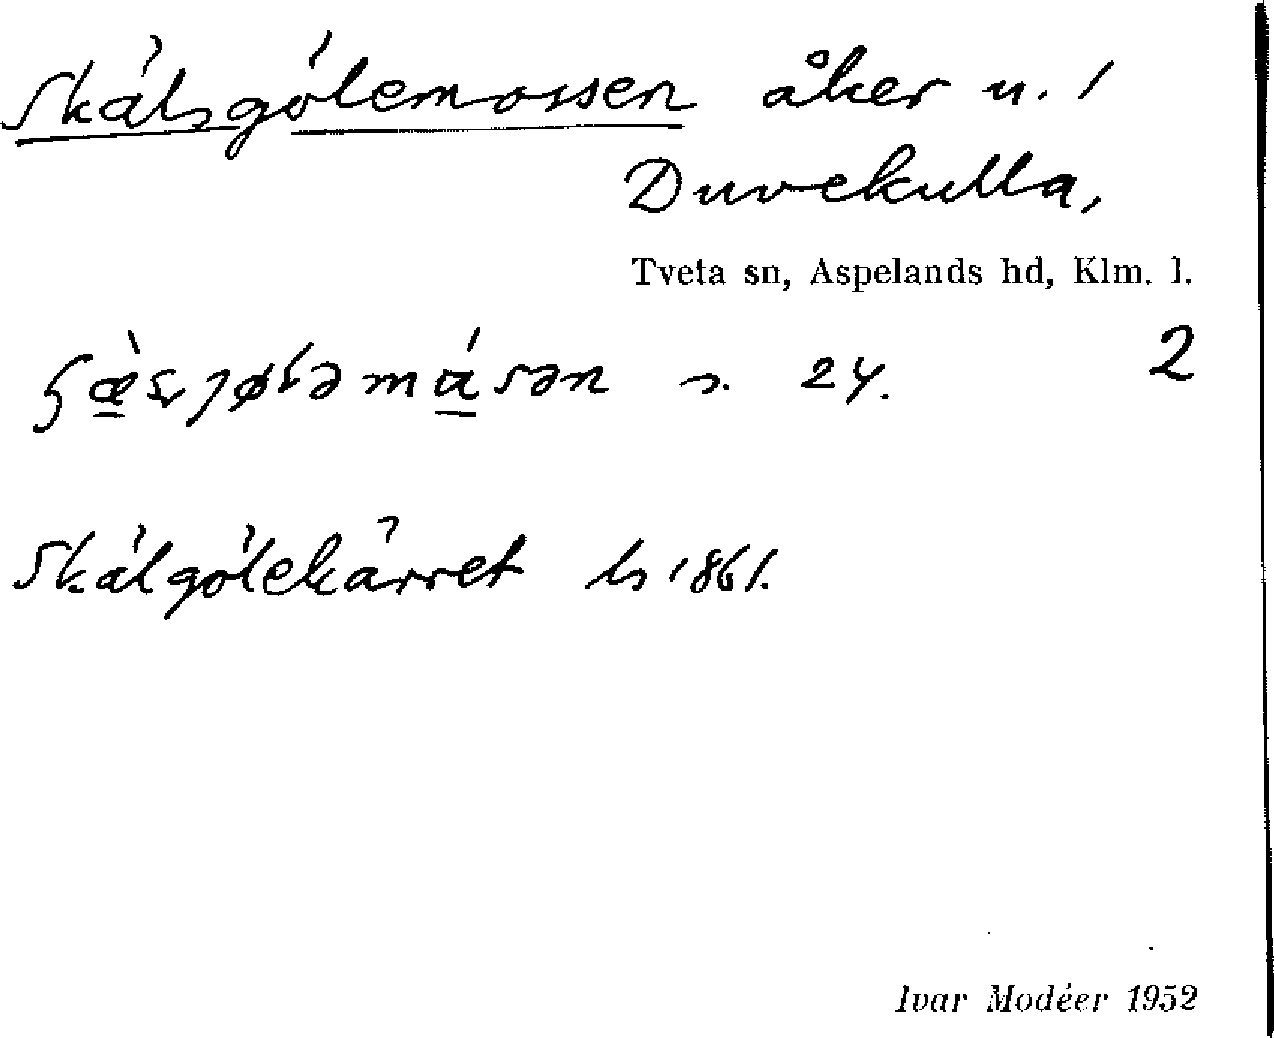 Skälsgölemossen åker u. /
Duvekulla,
Tveta sn, Aspelands hd, Klm. l.
s. 24. 2
Skälgölekärret ls 1861.
Ivar Modéer 1952